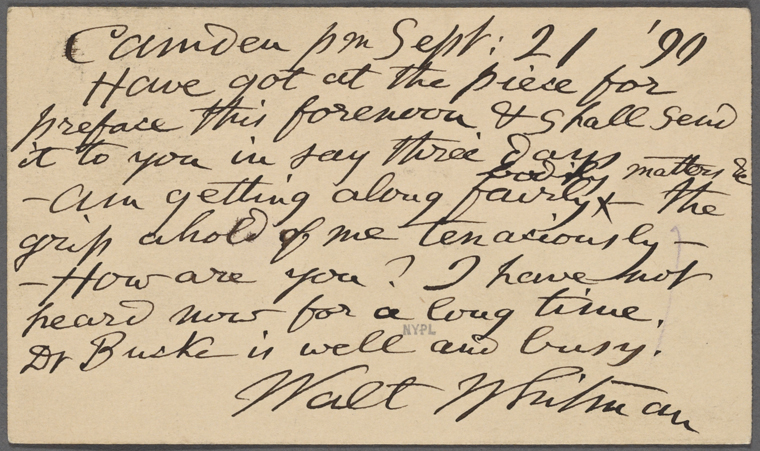 Camden pm Sept: 21 '90
Have got at the piece for
preface this forenoon & shall send
it to you in say three days
bodily matters &c
– am getting along fairly – the
grip ahold of me tenaciously –
– How are you? I have not
heard now for a long time.
NYPL
Dr Bucke is well and busy.
Walt Whitman